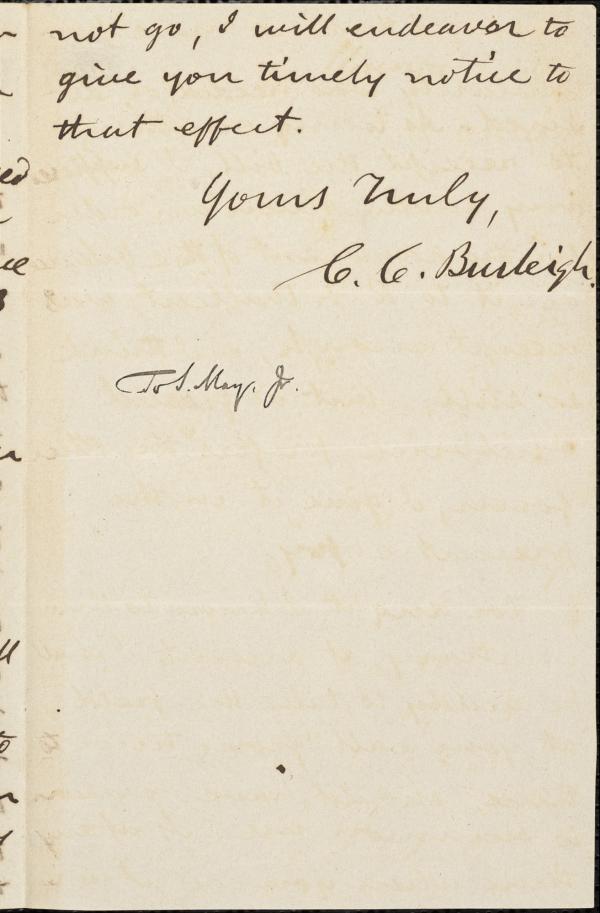 not go, I will endeavor to
give you timely notice to
that effect.
Yours Truly,
C. C. Burleigh.
To S. May, Jr.